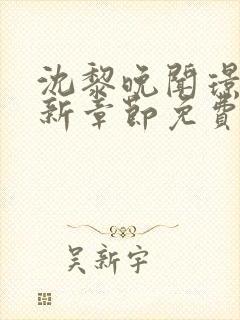 沈黎晚闻璟
新章节免费
吴新宇